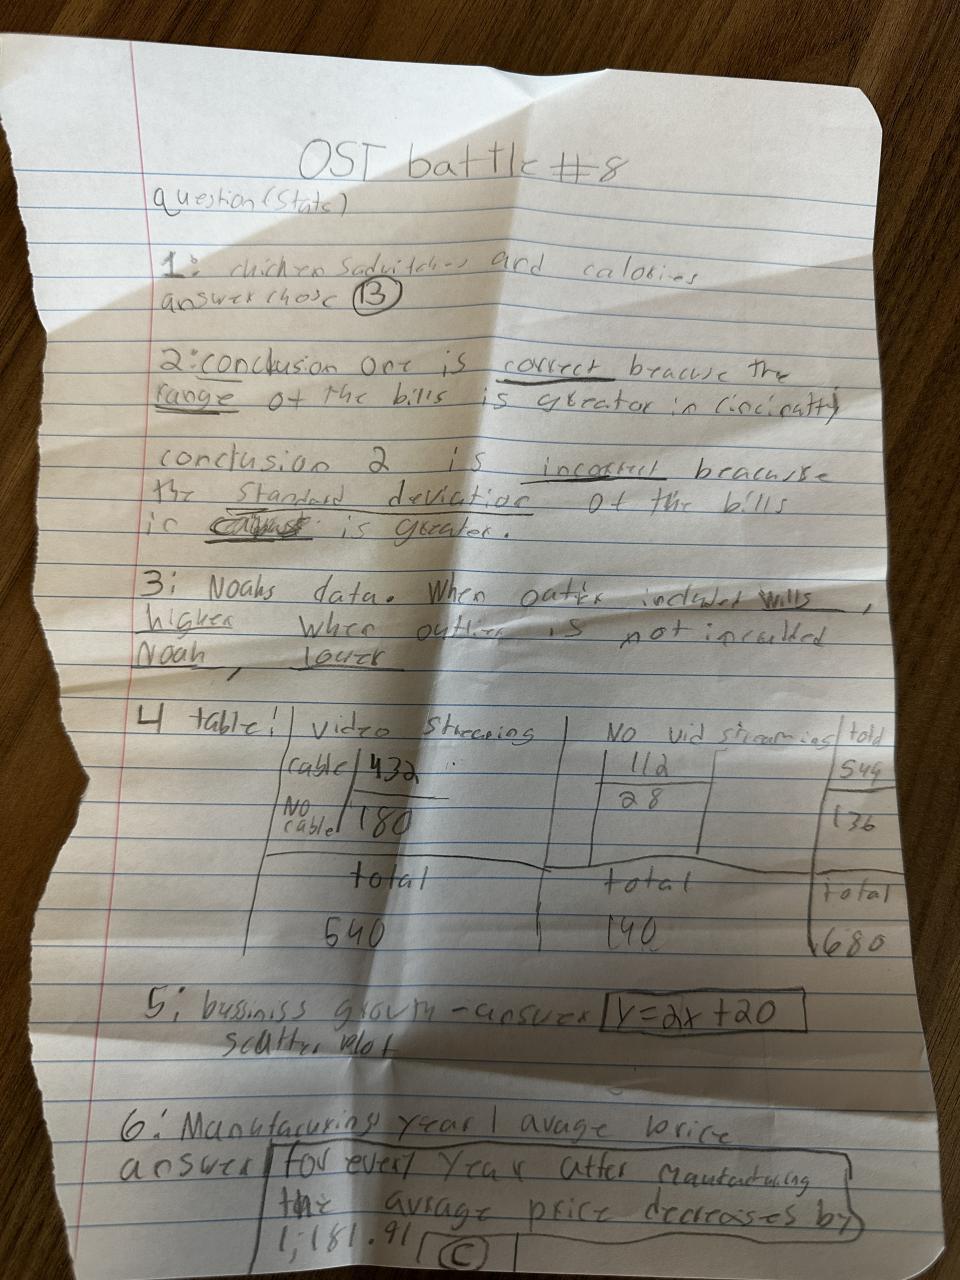 OST battle #8
Question (State)
1: chicken sadwitches and calories
answer chose B
2: conclusion one is correct beacuse the
range of the bills is greator in Cincinatty
conclusion 2 is incorrect beacuse
the standard deviation of the bills
in is greater.
3: Noahs data. When included Wills,
higher When outlier is not inculded
Noah, lower
4 table: video streeming No vid streaming total
cable 432 112 544
No cable 180 28 136
total total total
540 140 680
5: bussiniss growth - answer y=2x+20
scatter plot
6: Manufacuring year | avage price
answer for every year after
the avrage price decreases by
1,181.91 C